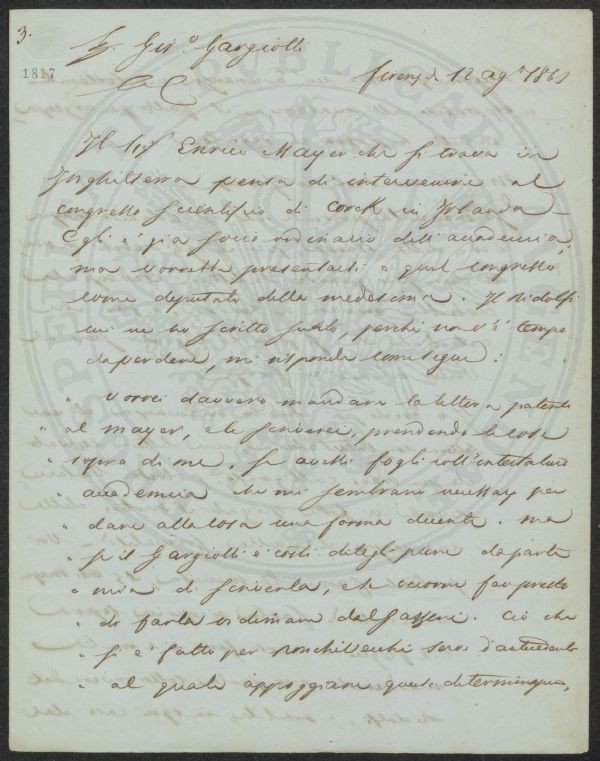 3.
Sr. Girº Gargiolli
1817
Firenze 12 agº 186
Il Sigr Enrico Mayer che si trova in
Inghilterra pensa di intervenire al
congresso scientifico di Corck in Irlanda
Egli è già socio ordinario dell'accademia,
ma vorrebbe presentarsi a quel congresso
come deputato della medesima. Il Ridolfi
cui ne ho scritto subito, perché non v'è tempo
da perdere, mi risponde come segue:
" Vorrei davvero mandare la lettera patente
" al Mayer, e la scriverei, prendendo la cosa
" sopra di me, se avessi fogli coll'intestatura
" accademica che mi sembrano necessarj per
" dare alla cosa una forma decente. Ma
" se il Gargiolli è costì ditegli pure da parte
" mia di scriverla, che occorre far presto
" di farla vidimare dal Ci che
" si è fatto per sarà d'antecedente
" al quale appoggiare questa determinazione,